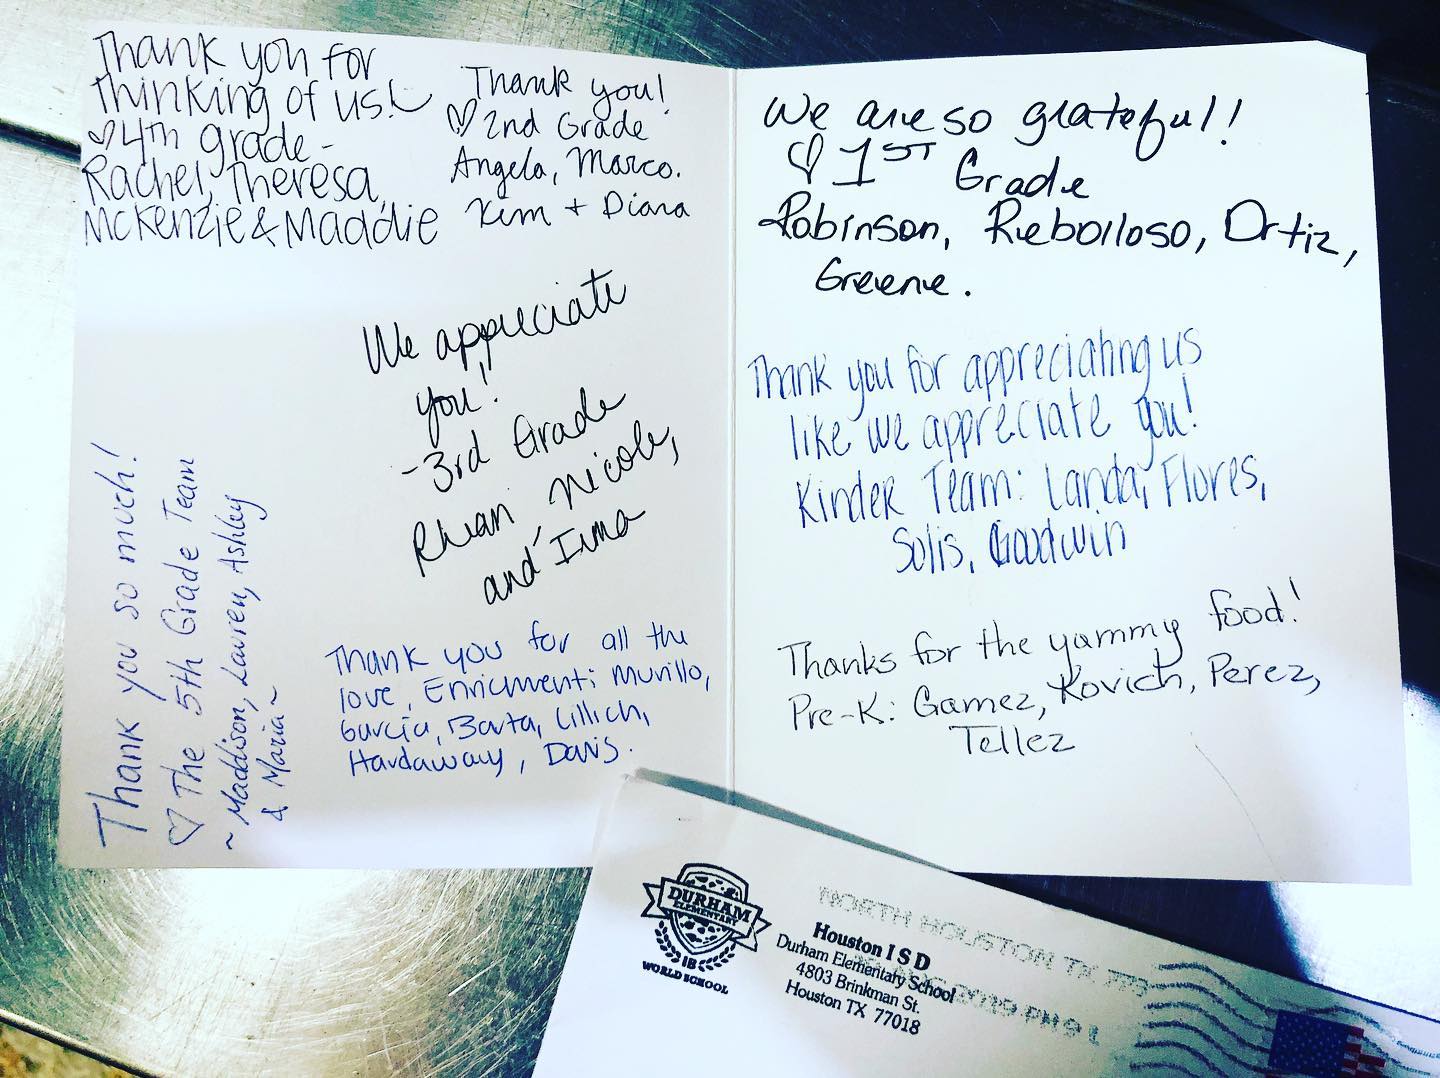 Thank you for
thinking of us!
♡ 4th grade -
Rachel, Theresa,
McKenzie & Maddie
Thank you!
♡ 2nd Grade
Angela, Marco.
Kim + Diana
We appreciate
you!
- 3rd Grade
Rhian, Nicole,
and Irma
Thank you so much!
♡ The 5th Grade Team
~ Maddison, Lauren, Ashley
& Maria ~
Thank you for all the
love, Enrichment: Murillo,
Garcia, Barta, Lillich,
Hardaway, Davis.
We are so grateful!!
♡ 1ST Grade
Robinson, Rebolloso, Ortiz,
Greene.
Thank you for appreciating us
like we appreciate you!
Kinder Team: Landa, Flores,
Solis, Goodwin
Thanks for the yummy food!
Pre-K: Gamez, Kovich, Perez,
Tellez
DURHAM
ELEMENTARY
IB
WORLD SCHOOL
Houston I S D
Durham Elementary School
4803 Brinkman St.
Houston TX 77018
NORTH HOUSTON TX 773
2019 PM 9 L